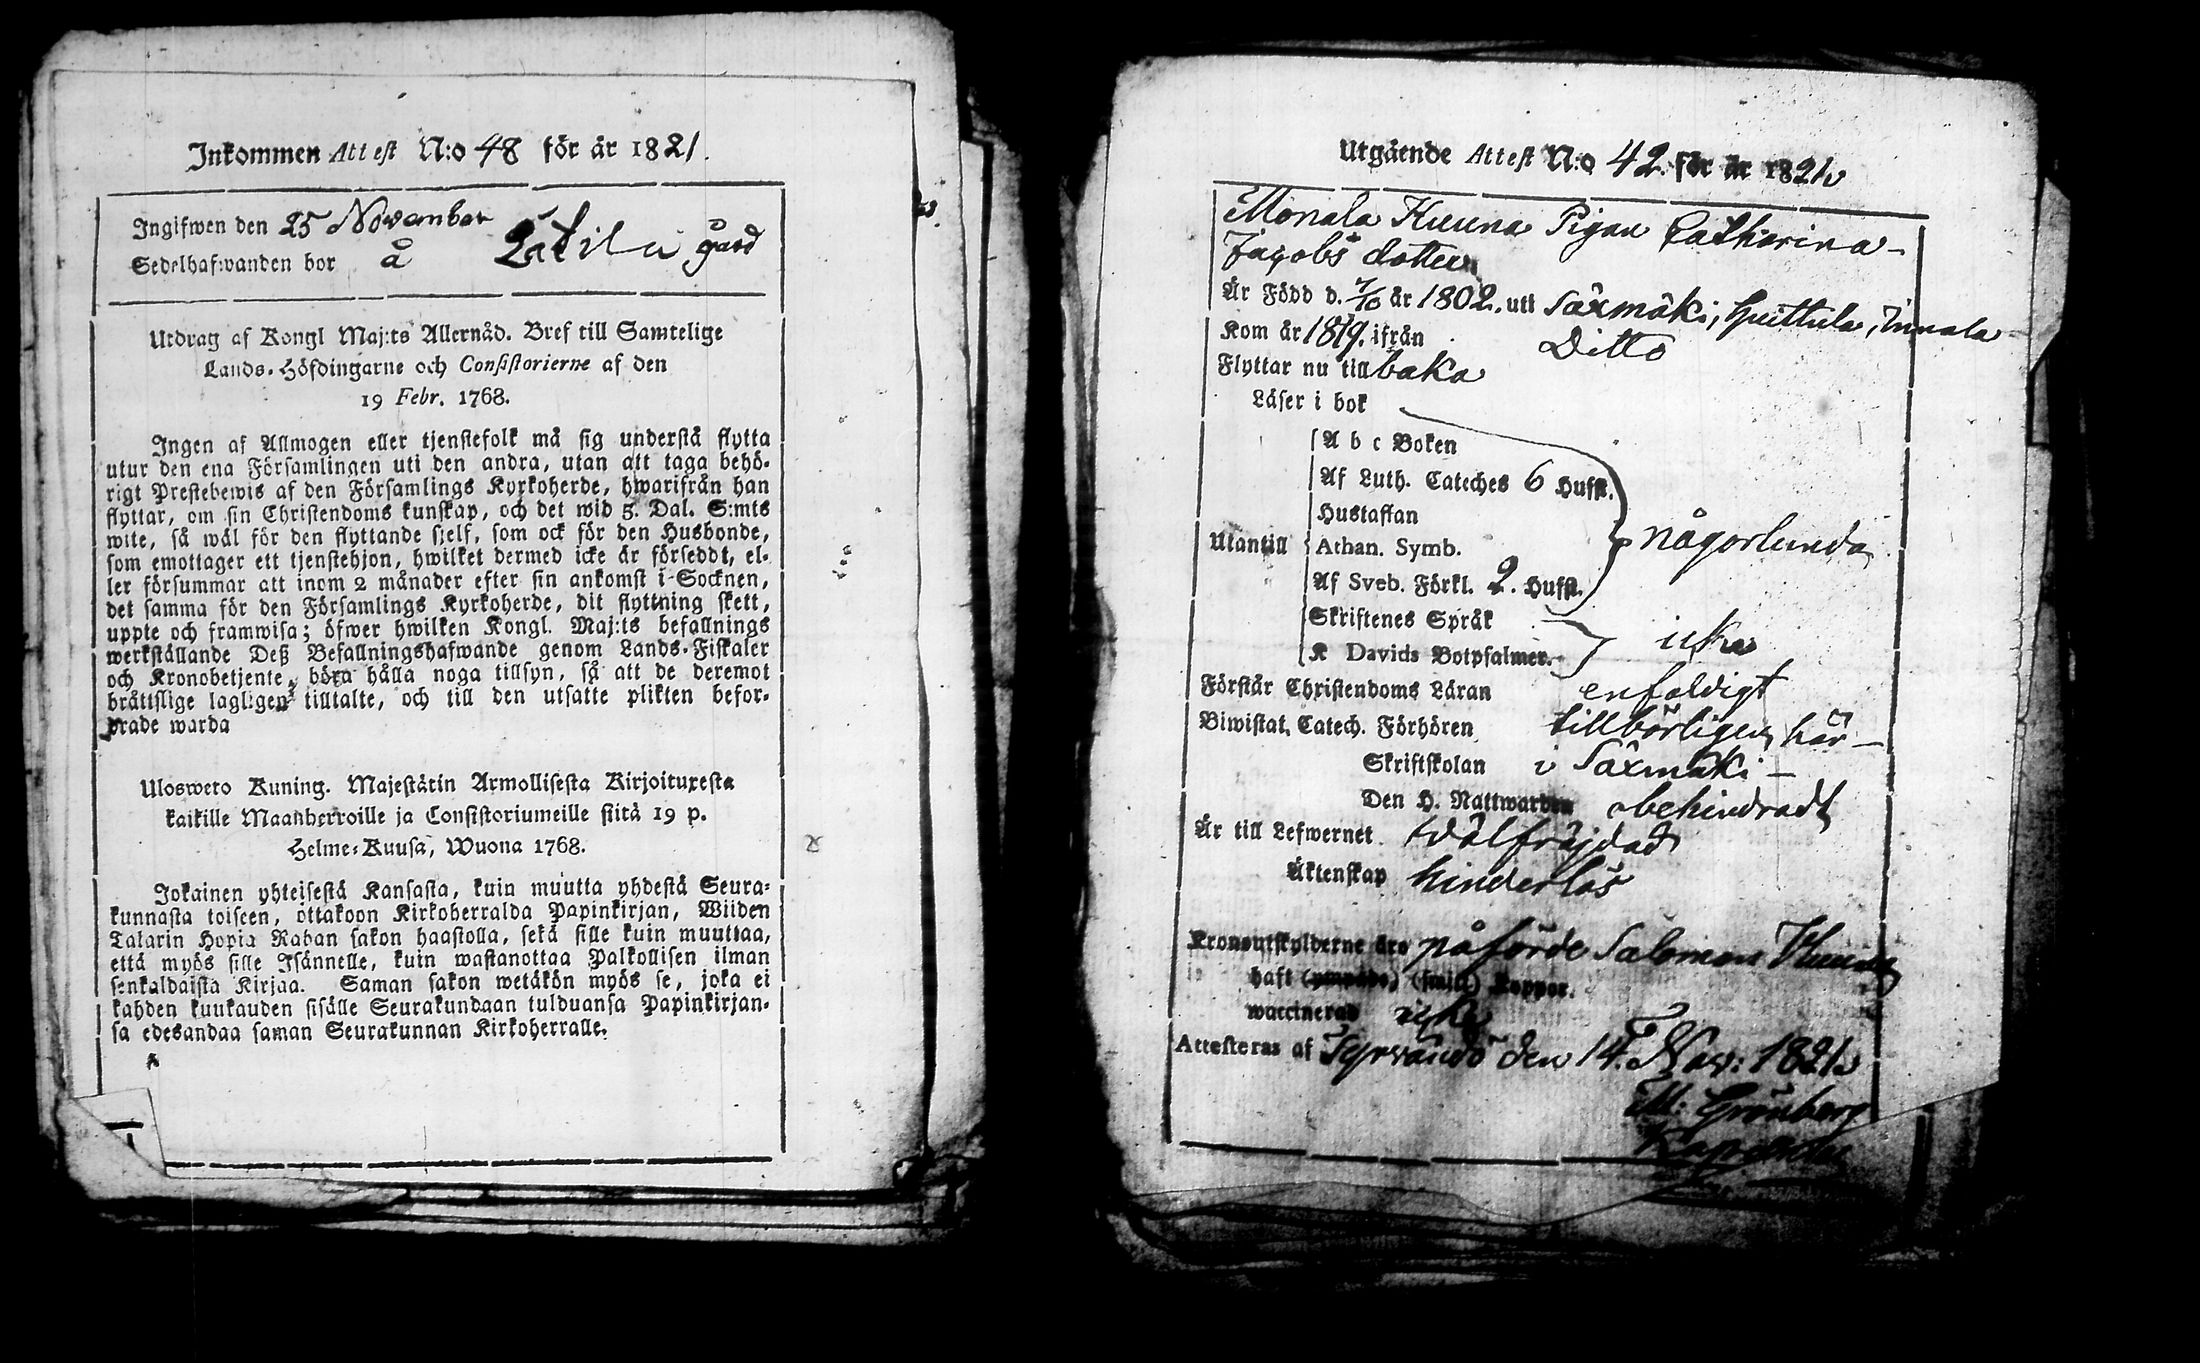 Inkommen Attest N:o 48 för år 1821.
Ingifwen den 25 November
Sedelhafwanden bor å gård
Utdrag af Kongl Maj:ts Allernåd. Bref till Samtelige
Lands-Höfdingarne och Consistorierne af den
19 Febr. 1768.
Ingen af Allmogen eller tjenstefolk må sig understå flytta
utur den ena Församlingen uti den andra, utan att taga behö-
rigt Prestebewis af den Församlings Kyrkoherde, hwarifrån han
flyttar, om sin Christendoms kunskap, och det wid 5. Dal. S:mts
wite, så wäl för den flyttande sjelf, som ock för den Husbonde,
som emottager ett tjenstehjon, hwilket dermed icke är försedt, el-
ler försummar att inom 2 månader efter sin ankomst i Socknen,
det samma för den Församlings Kyrkoherde, dit flyttning skett,
uppte och framwisa; öfwer hwilken Kongl. Maj:ts befallnings
werkställande Deß Befallningshafwande genom Lands-Fiskaler
och Kronobetjente böra hålla noga tillsyn, så att de deremot
bråttslige lagligen tilltalte, och till den utsatte plikten befor-
drade warda
Ulosweto Kuning. Majestätin Armollisesta Kirjoituxesta
kaikille Maanherroille ja Consistoriumeille siitä 19 p.
Helme-Kuusa, Wuona 1768.
Jokainen yhteisestä Kansasta, kuin muutta yhdestä Seura-
kunnasta toiseen, ottakoon Kirkoherralda Papinkirjan, Wiiden
Talarin Hopia Rahan sakon haastolla, sekä sille kuin muuttaa,
että myös sille Isännelle, kuin wastanottaa Palkollisen ilman
senkaldaista Kirjaa. Saman sakon wetäkön myös se, joka ei
kahden kuukauden sisälle Seurakundaan tulduansa Papinkirjan-
sa edesandaa saman Seurakunnan Kirkoherralle.
Utgående Attest N:o 42. för år 1821.
Monala Kuuna Pigan Catharina
Jacobs dotter
Är Född d. 7/10 år 1802. uti Säxmäki, Huittula, Innala
Kom år 1819. ifrån Ditto
Flyttar nu tillbaka
Läser i bok
A b c Boken
Af Luth. Cateches 6 Hufst.
Hustaflan
Utantill Athan. Symb. någorlunda
Af Sveb. Förkl. 2. Hufst.
Skriftenes Språk
K Davids Botpsalmer. icke
Förstår Christendoms Läran enfaldigt
Biwistat Catech. Förhören tillbörligen här
Skriftskolan i Säxmäki
Den H. Nattwarden obehindradt
Är till Lefwernet wälfräjdad
Äktenskap hinderlös
Kronoutskylderne äro påförde Salomon Kuuna
haft (ympade) (smitt) Koppor.
waccinerad icke
Attesteras af Tyrvändö den 14. Nov: 1821.
M: Grönberg